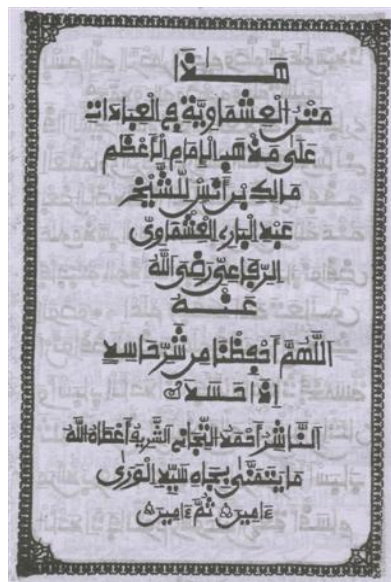 هَـٰذَا
مَتْنُ الْعِشْمَاوِيَّةِ فِي الْعِبَادَاتِ
عَلَى مَذْهَبِ الْإِمَامِ الْأَعْظَمِ
مَالِكِ بْنِ أَنَسٍ لِلشَّيْخِ
عَبْدِ الْبَارِي الْعِشْمَاوِي
الرِّفَاعِي رَضِيَ اللَّهُ
عَنْهُ
اَللَّهُمَّ احْفِظْنَا مِن شَرِّ حَاسِدٍ
إِذَا حَسَدَ
اَلنَّاشِرُ أَحْمَدُ التِّجَانِي الشَّرِيفِ أَعْطَاهُ اللَّهُ
مَا يَتَمَنَّى بِجَاهِ سَيِّدِ الْوَرَى
ءَامِين ثُمَّ ءَامِين